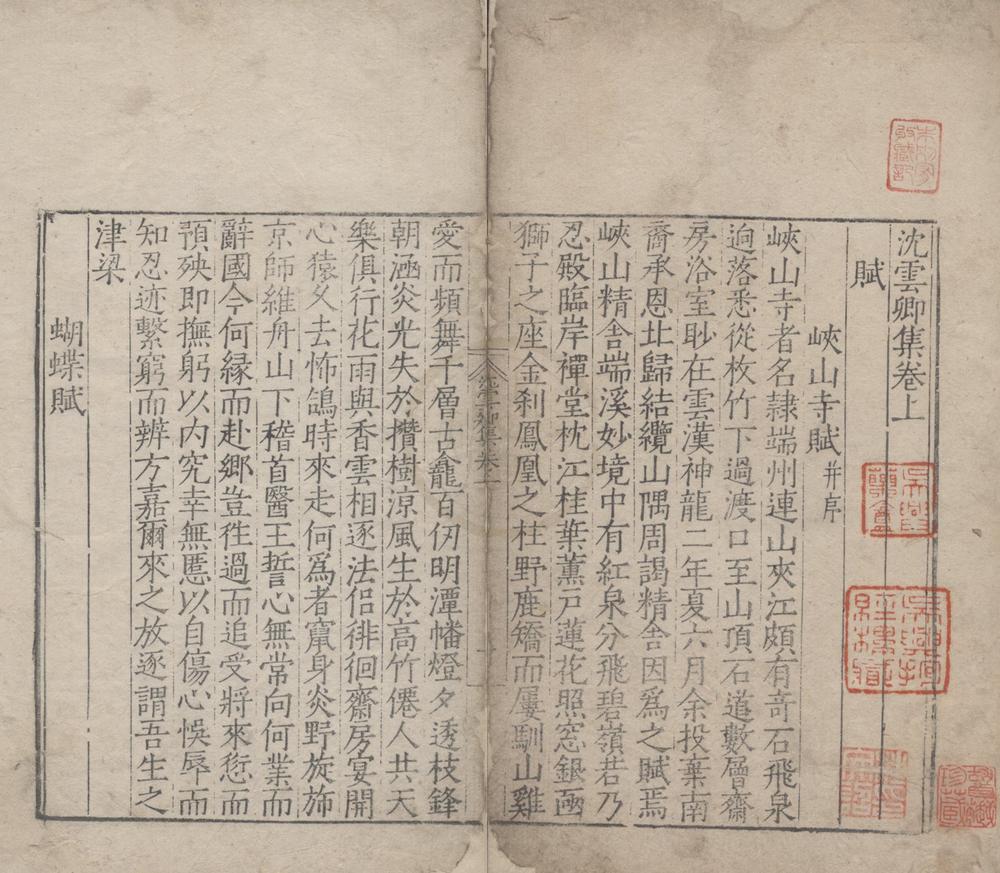 沈雲卿集卷上
賦
峽山寺賦并序
峽山寺者名隷端州連山夾江頗有竒石飛泉
逈落悉從枚竹下過渡口至山頂石道數層齋
房浴室眇在雲漢神龍二年夏六月余投棄南
裔承恩北歸結纜山隅周謁精舍因爲之賦焉
峽山精舍端溪妙境中有紅泉分飛碧嶺若乃
忍殿臨岸禪堂枕江桂葉薰戸蓮花照窓銀函
獅子之座金刹鳳凰之柱野鹿矯而屢馴山雞
愛而頻舞千層古龕百仞明潭幡燈夕透枝鋒
朝涵炎光失於攢樹涼風生於高竹僊人共天
樂俱行花雨與香雲相逐法侣徘徊齋房宴開
心猿久去怖鴿時來走何爲者竄身炎野旋斾
京師維舟山下稽首醫王誓心無常向何業而
辭國今何縁而赴鄉豈徃過而追受將來愆而
預殃即撫躬以内究幸無慝以自傷心悞辱而
知忍迹繫窮而辨方嘉爾來之放逐謂吾生之
津梁
蝴蝶賦